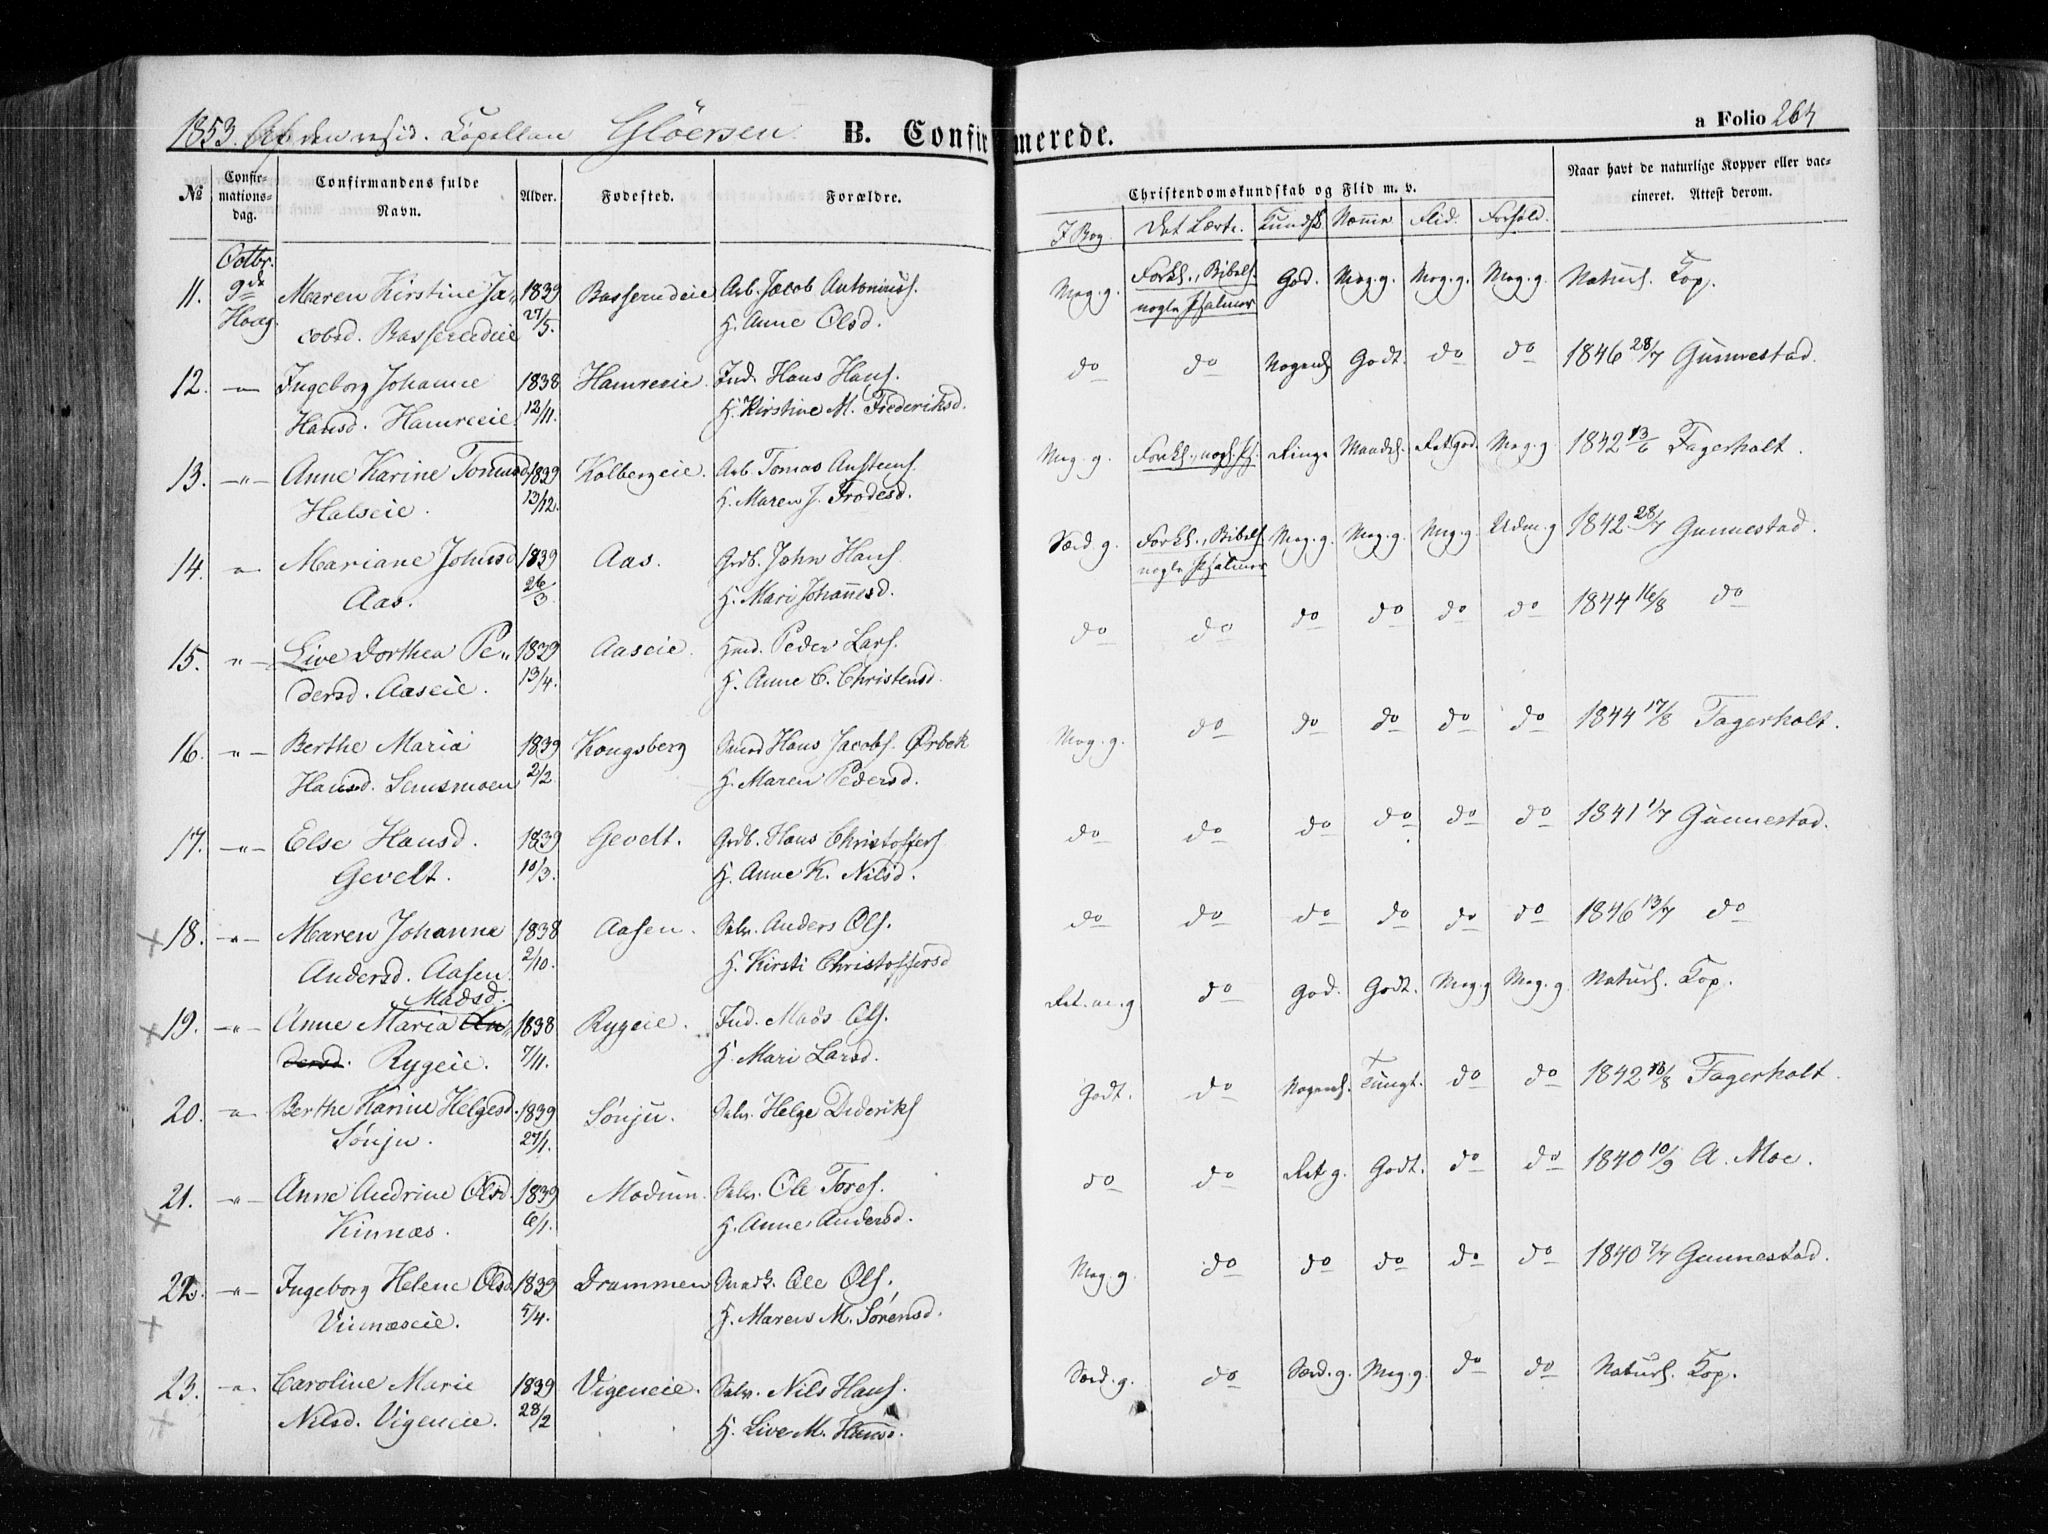 1853. Af den resid. Capellan Glöersen B. Confirmerede. a Folio 264
№ Confirmationsdag. Confirmandens fulde Navn. Alder. Fødested. Forældre. Christendomskundskab og Flid m. v. Naar havt de naturlige Kopper eller vaccineret. Attest derom.
I Bog. Det Lærte. Kundsk. Nemme Flid. Forhold.
Octbr.
11. 9de Maren Kirstine Ja- 1839 Basserudeie Arb. Jacob Antonius. Meg. g. Forkl., Bibelh. God. Meg. g. Meg. g. Meg. g. Naturl. Kop.
Haug. cobsd. Basserudeie 27/5. H. Anne Olsd. nogle Psalmer
12. -"- Ingeborg Johanne 1838 Hamreeie. Ind. Hans Hans. do do Nogenl. Godt. do do 1846 28/7 Gunnestad.
Hansd. Hamreeie. 12/11. H. Kirstine M. Frederiksd.
13. -"- Anne Karine Tomasd. 1839 Kolbergeie. Arb. Tomas Anstens. Meg. g. Forkl., nogl. Ps. Ringe Maadel. Ret God. Meg. g. 1842 13/6 Fagerholt.
Halseie. 13/12. H. Maren J. Frodesd.
14. -"- Mariane Johnsd. 1839 Aas. Grdb. John Hans. Særd. g. Forkl., Bibelh. Meg. g. Meg. g. Meg. g. Udm. g. 1842 28/7 Gunnestad.
Aas. 26/3. H. Mari Johannesd. nogle Psalmer
15. -"- Live Dorthea Pe- 1839 Aaseie. Peder Lars. do do do do do do 1844 16/8 do
dersd. Aaseie. 13/4. H. Anne C. Christensd.
16. -"- Berthe Maria 1839 Kongsberg Smed Hans Jacobs. Ørbek Meg. g. do do do do do 1844 17/8 Fagerholt.
Hansd. Semsmoen 2/2 H. Maren Pedersd.
17. -"- Else Hansd. 1839 Gevelt. Grdb. Hans Christoffers. do do do do do do 1841 1/7 Gunnestad.
Gevelt. 10/3. H. Anne K. Nilsd.
18. -"- Maren Johanne 1838 Aasen. Selv. Anders Ols. do do do do do do 1846 13/7 do
Andersd. Aasen. 2/10. H. Kirsti Christoffersd
Madsd.
19. -"- Anne Maria An- 1838 Rygeie. Ind. Mads Ols. Ret. m. g do God. Godt. Meg. g Meg. g. Naturl. Kop.
dersd. Rygeie. 7/11. H. Mari Larsd.
20. -"- Berthe Karine Helgesd. 1839 Sønju. Selv. Helge Dideriks. Godt. do Nogenl. Tungt. do do 1842 18/8 Fagerholt.
Sønju. 27/1.
21. -"- Anne Andrine Olsd. 1839 Modum. Selv. Ole Tores. do do Ret g. Godt. do do 1840 10/9 A. Moe.
Kinnæs. 6/1. H. Anne Andersd.
22. -"- Ingeborg Helene Olsd. 1839 Drammen Ole Ols. Meg. g do do do do do 1840 7/7 Gunnestad.
Vinnæseie. 5/4. H. Maren M. Sørensd.
23. -"- Caroline Marie 1839 Vigeneie. Selv. Nils Hans. Særd. g. do Særd. g. Meg. g. do do Naturl. Kop.
Nilsd. Vigeneie. 28/2 H. Live M. Hansd.